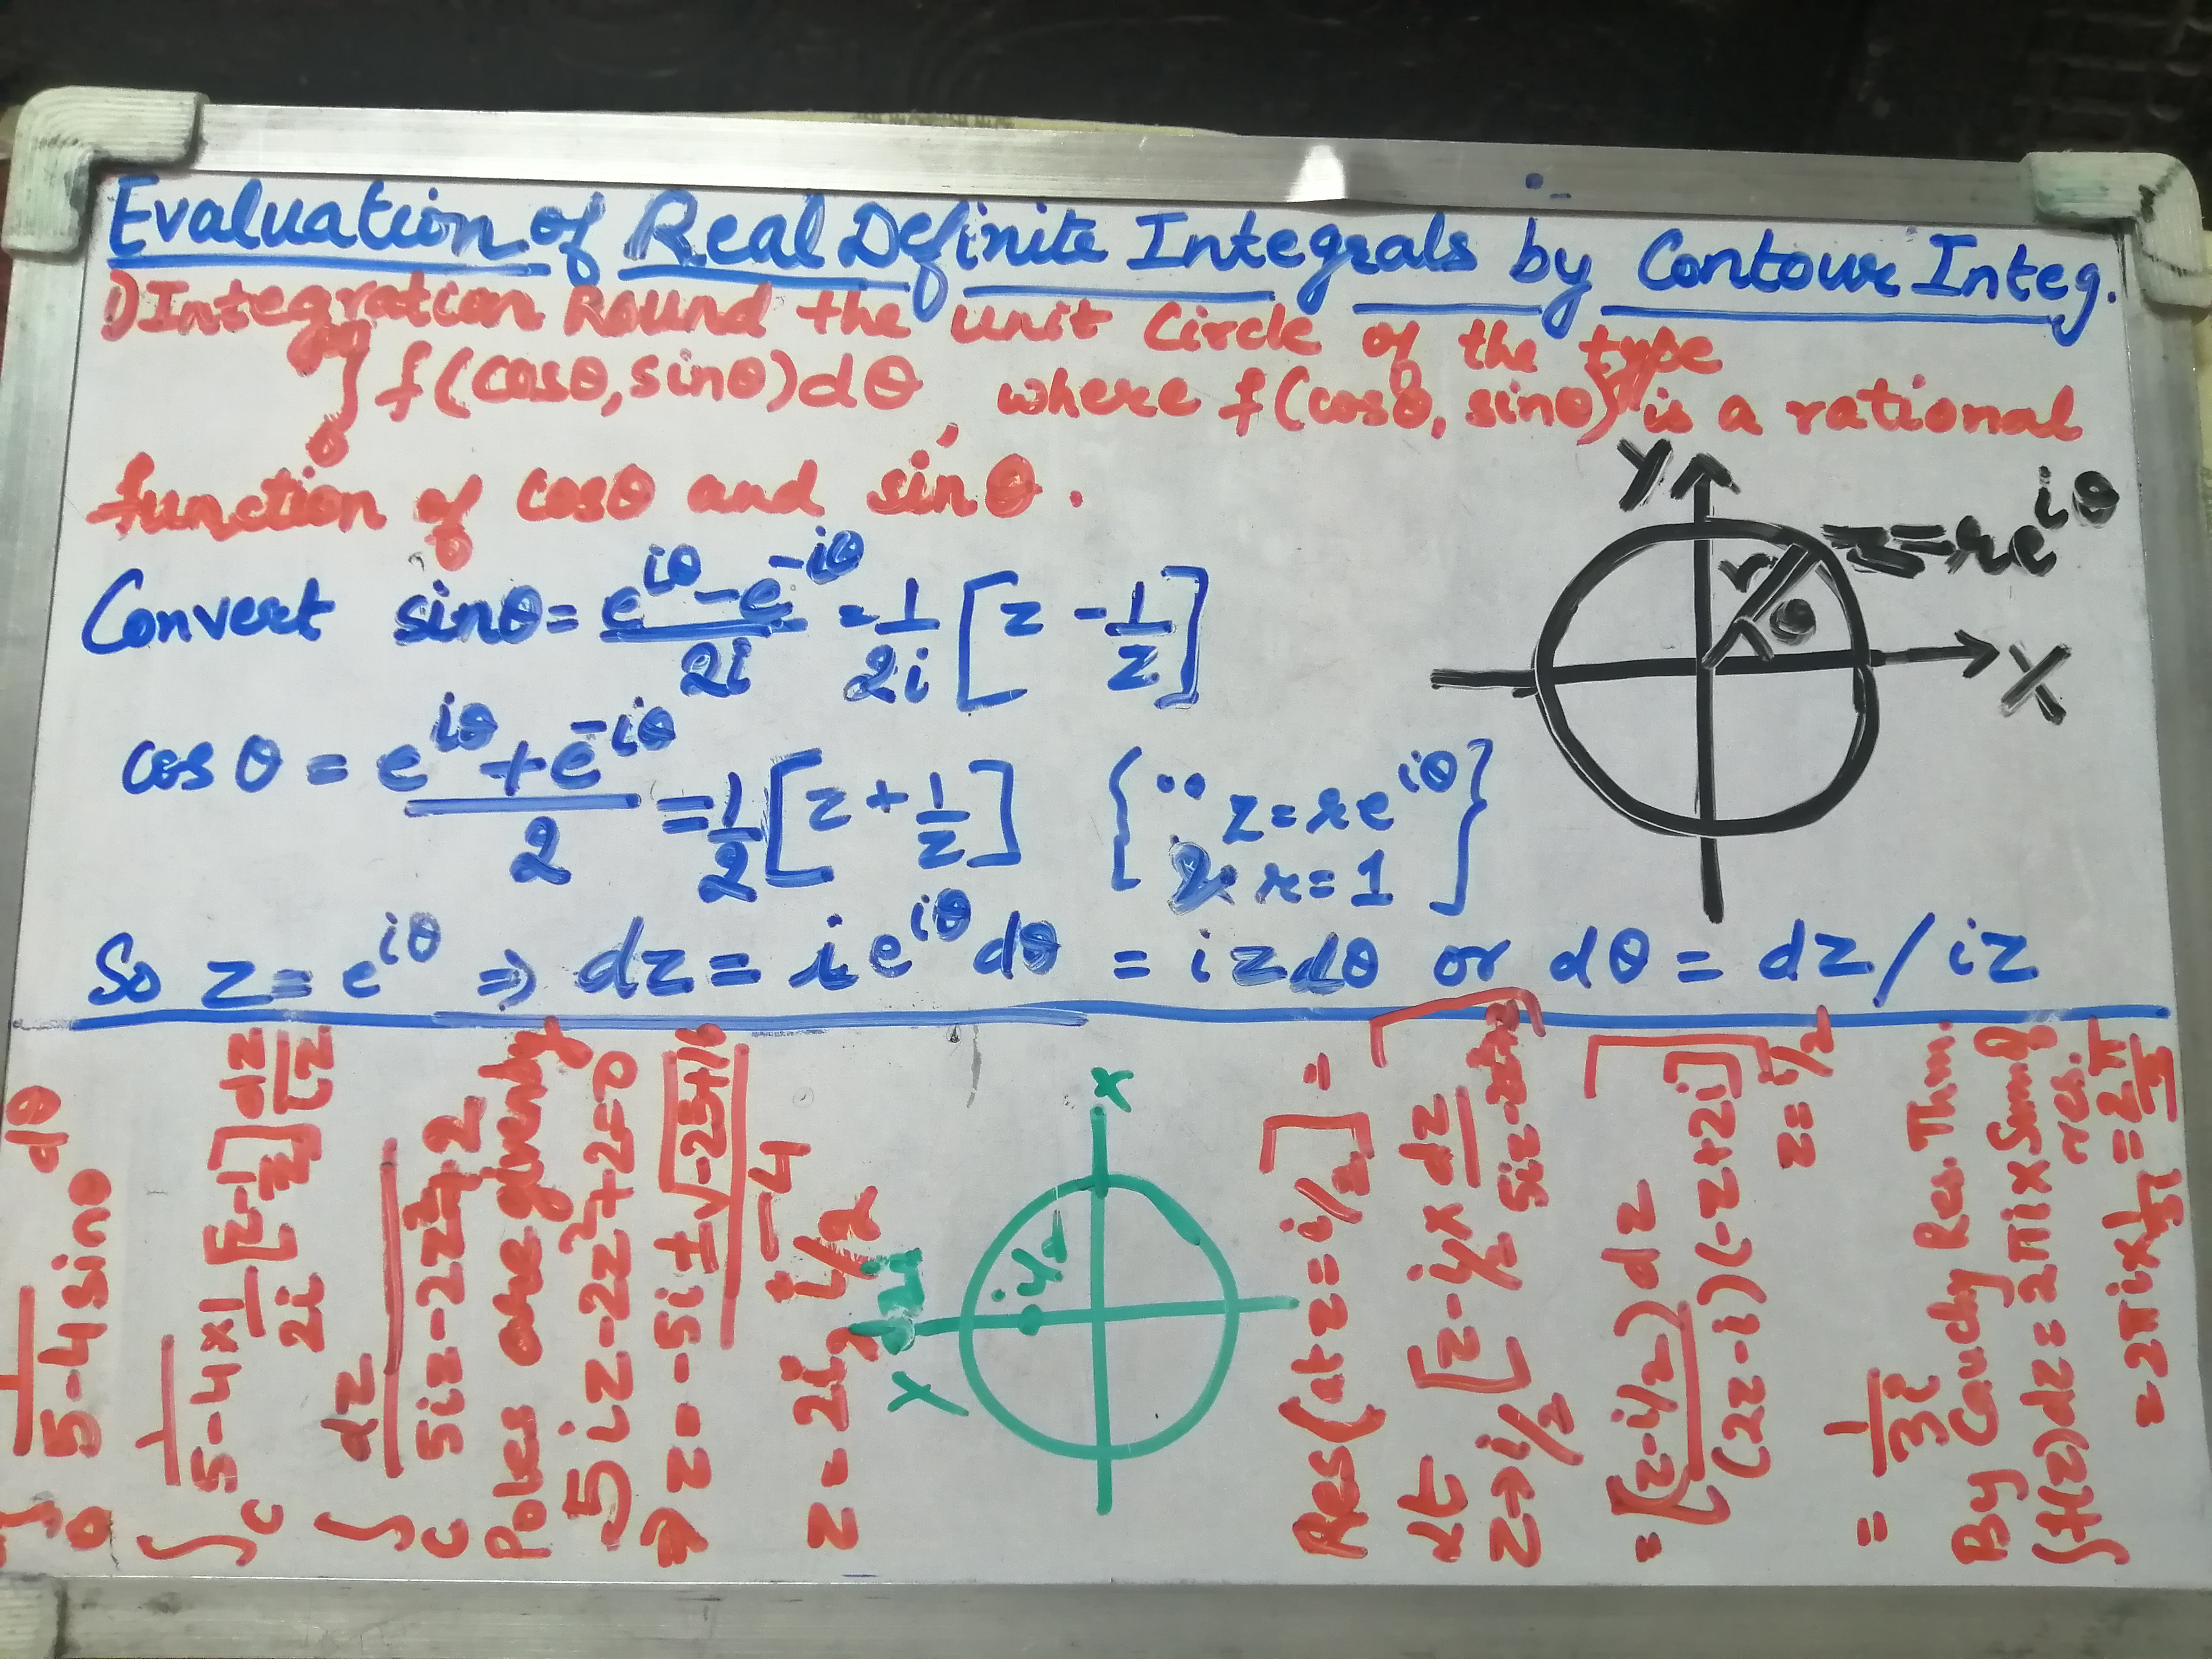 Evaluation of Real Definite Integrals by Contour Integ.
1) Integration Round the unit Circle of the type
∫ f(cosθ, sinθ)dθ, where f(cosθ, sinθ) is a rational
function of cosθ and sinθ.
Convert sinθ = (e^{iθ} - e^{-iθ})/2i = 1/2i [z - 1/z]
cosθ = (e^{iθ} + e^{-iθ})/2 = 1/2 [z + 1/z] {∵ z = re^{iθ}
& r = 1}
So z = e^{iθ} ⇒ dz = ie^{iθ}dθ = izdθ or dθ = dz/iz
Y
z = re^{iθ}
r
θ
X
∫_0 1/(5-4sinθ) dθ
∫_C 1/(5-4×1/2i [z-1/z]) dz/iz
∫_C dz/(5iz-2z²+2)
Poles are given by
5iz-2z²+2=0
⇒ z = (-5i ± √(-25+16))/-4
z = 2i, i/2
X
Y
2i
i/2
Res(at z = i/2) =
lt z→i/2 [z-i/2 × dz/(5iz-2z²+2)]
= [(z-i/2)dz/((2z-i)(-z+2i))] z=i/2
= 1/3i
By Cauchy Res. Thm.
∫f(z)dz = 2πi × Sum of res.
= 2πi × 1/3i = 2π/3